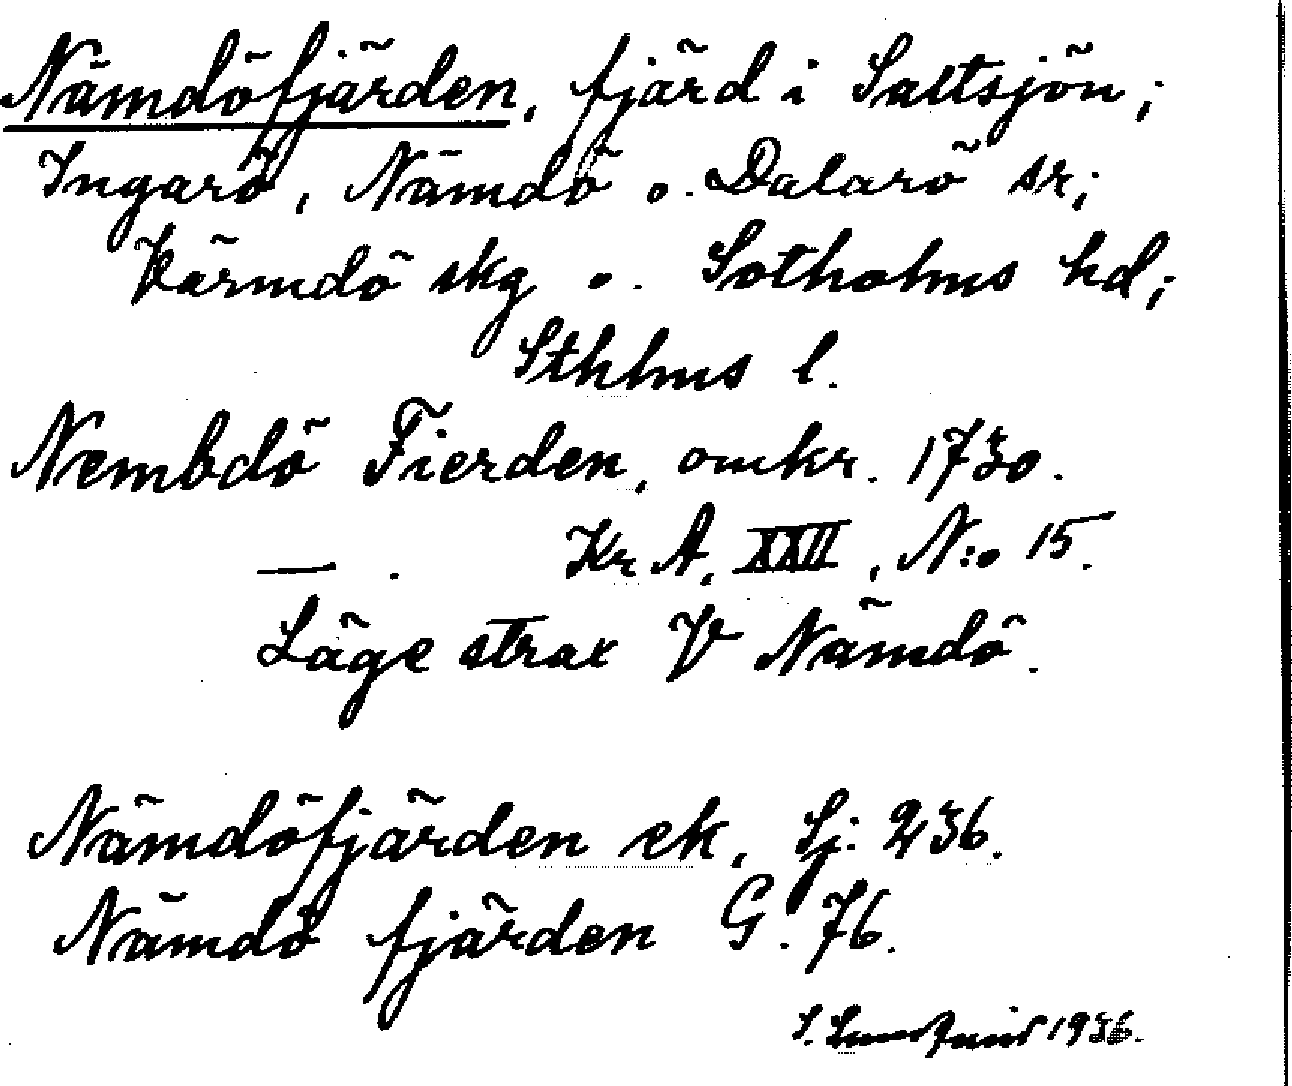 Nämdöfjärden, fjärd i Saltsjön;
Ingarö, Nämdö o. Dalarö sr;
Värmdö skg o. Sotholms hd;
Sthlms l.
Nembdö Fierden, omkr. 1730.
— . Kr A, XXII, N:o 15.
Läge strax V Nämdö.
Nämdöfjärden ek, Sj. 236.
Nämdö fjärden G. 76.
S. 1936.